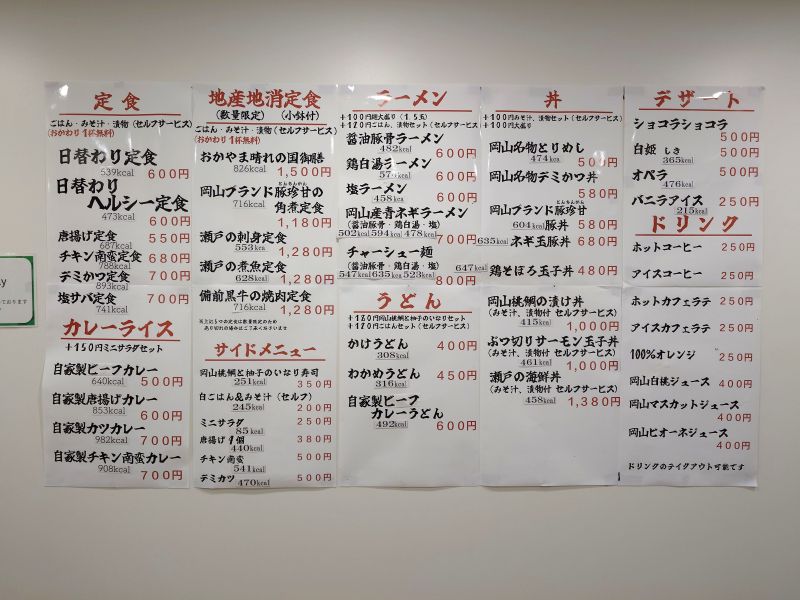 定食
ごはん・みそ汁・漬物(セルフサービス)
(おかわり1杯無料)
日替わり定食
539kcal 600円
日替わり
ヘルシー定食
473kcal
600円
唐揚げ定食 550円
687kcal
チキン南蛮定食 680円
788kcal
デミかつ定食 700円
893kcal
塩サバ定食 700円
741kcal
カレーライス
+150円ミニサラダセット
自家製ビーフカレー
640kcal 500円
自家製唐揚げカレー
853kcal 600円
自家製カツカレー
982kcal 700円
自家製チキン南蛮カレー
908kcal 700円
地産地消定食
(数量限定) (小鉢付)
ごはん・みそ汁・漬物(セルフサービス)
(おかわり1杯無料)
おかやま晴れの国御膳
826kcal 1,500円
岡山ブランド豚珍甘の
716kcal 角煮定食
1,180円
瀬戸の刺身定食
553kcal 1,280円
瀬戸の煮魚定食
628kcal 1,280円
備前黒牛の焼肉定食
716kcal 1,280円
サイドメニュー
岡山桃鯛と柚子のいなり寿司
251kcal 350円
白ごはん&みそ汁(セルフ)
245kcal 200円
ミニサラダ 250円
85kcal
唐揚げ1個 380円
440kcal
チキン南蛮 500円
541kcal
デミカツ 500円
470kcal
ラーメン
+100円麺大盛り(1.5玉)
+170円ごはん、漬物セット(セルフサービス)
醤油豚骨ラーメン
482kcal 600円
鶏白湯ラーメン
579kcal 600円
塩ラーメン
458kca 600円
岡山産青ネギラーメン
(醤油豚骨・鶏白湯・塩)
502kcal 594kcal 478kcal 700円
チャーシュー麺
(醤油豚骨・鶏白湯・塩)
547kcal 635kcal 523kcal 800円
うどん
かけうどん 400円
308kcal
わかめうどん 450円
316kcal
自家製ビーフ
カレーうどん
492kcal 600円
丼
+100円みそ汁、漬物セット(セルフサービス)
+100円大盛り
岡山名物とりめし
474kcal 500円
岡山名物デミかつ丼
580円
岡山ブランド豚珍甘
とんちんかん
604kcal 豚丼 580円
635kcal ネギ玉豚丼 680円
647kcal 鶏そぼろ玉子丼 480円
岡山桃鯛の漬け丼
(みそ汁、漬物付 セルフサービス)
415kcal 1,000円
ぶつ切りサーモン玉子丼
(みそ汁、漬物付 セルフサービス)
461kcal 1,000円
瀬戸の海鮮丼
(みそ汁、漬物付 セルフサービス)
458kcal 1,380円
デザート
ショコラショコラ
500円
白姫 しき 500円
365kcal
オペラ 500円
476kcal
バニラアイス 250円
215kcal
ドリンク
ホットコーヒー 250円
アイスコーヒー 250円
ホットカフェラテ 250円
アイスカフェラテ 250円
100%オレンジ 250円
岡山白桃ジュース 400円
岡山マスカットジュース
400円
岡山ピオーネジュース
400円
ドリンクのテイクアウト可能です